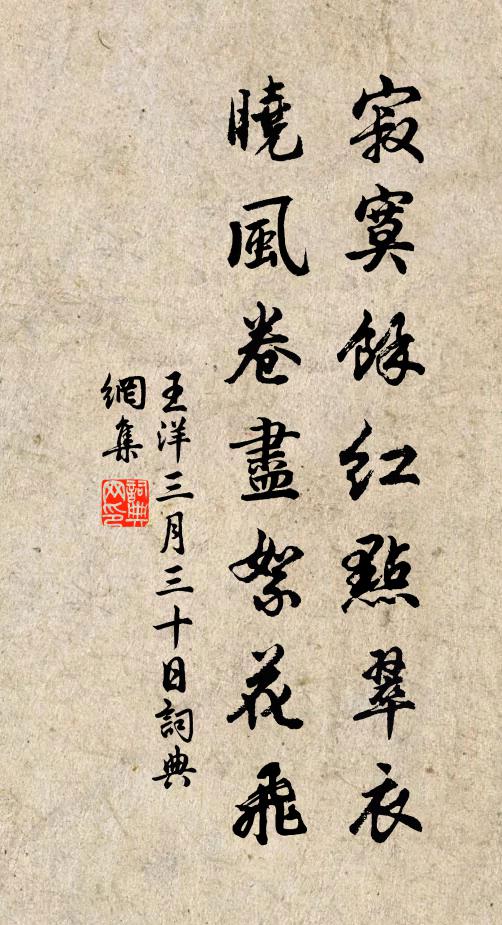 寂寞餘紅點翠衣
曉風卷盡絮花飛
王洋三月三十日詞典
網集
詞典
网印